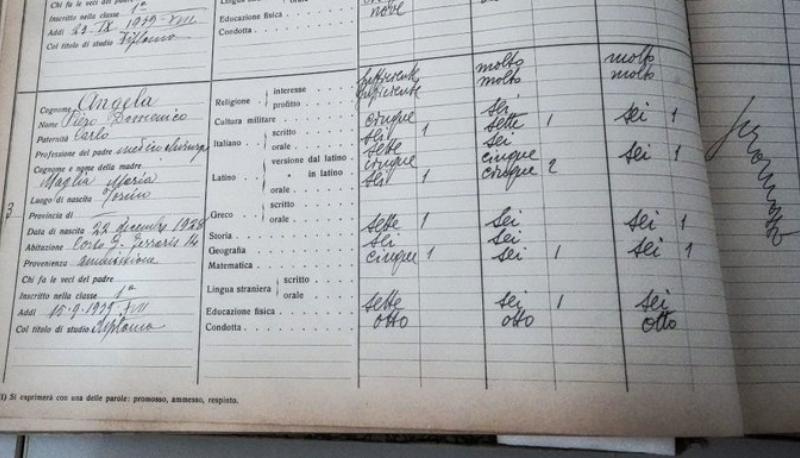 Chi fa le veci del padre
Inscritto nella classe 1ª
Addì 23-IX 1939-XVII
Col titolo di studio Diploma
Lingua straniera orale
Educazione fisica nove
Condotta
Cognome Angela
Nome Piero Domenico
Paternità Carlo
Professione del padre medico chirurgo
Cognome e nome della madre
Maglia Maria
Luogo di nascita Torino
3 Provincia di —
Data di nascita 22 dicembre 1928
Abitazione Corso G. Ferraris 14
Provenienza ammissione
Chi fa le veci del padre
Inscritto nella classe 1ª
Addì 15-9-1939-XVII
Col titolo di studio Diploma
Religione interesse sufficiente molto molto
profitto sufficiente molto molto
Cultura militare
Italiano scritto cinque sei sei 1
orale sei 1 sette 1
Latino versione dal latino sette sei
" in latino cinque cinque sei 1
orale sei 1 cinque 2
Greco scritto
orale
Storia sette 1 sei sei 1
Geografia sei sei
Matematica cinque 1 sei 1 sei 1
Lingua straniera scritto
orale
Educazione fisica sette sei 1 sei
Condotta otto otto otto
promosso
1) Si esprimerà con una delle parole: promosso, ammesso, respinto.